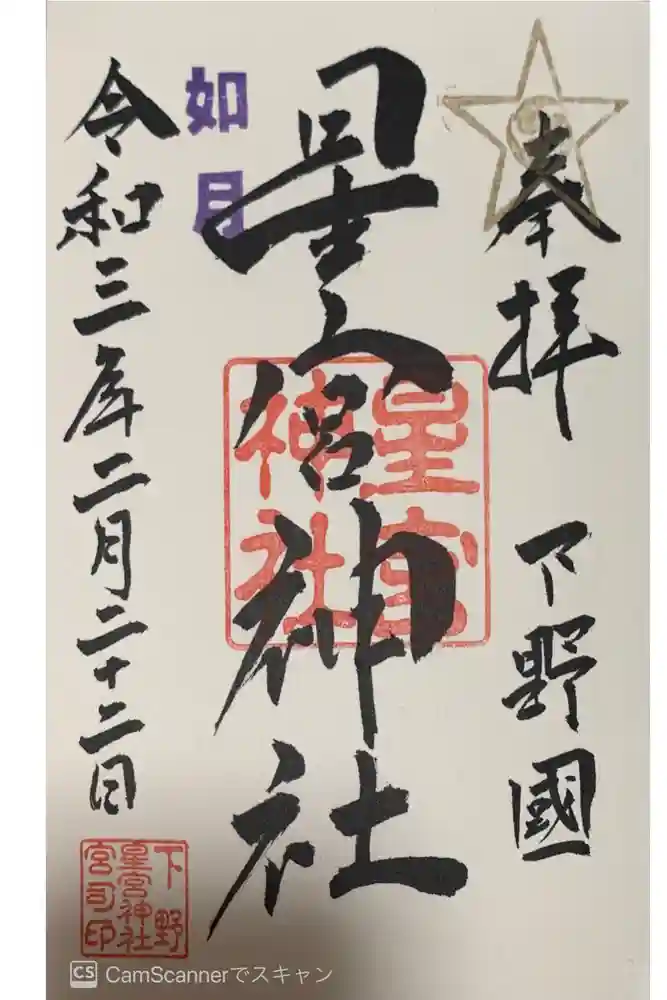 奉拝
下野國
星宮神社
星宮
神社
如月
令和三年二月二十二日
下野
星宮神社
宮司印
CS CamScannerでスキャン